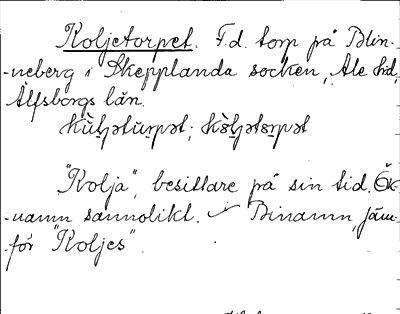 Koljetorpet. F.d. torp på Blin-
-neberg i Skepplanda socken, Ale hd,
Älfsborgs län.
"Kolja", besittare på sin tid. Ök-
-namn sannolikt. Binamn, jäm-
-för "Koljes".